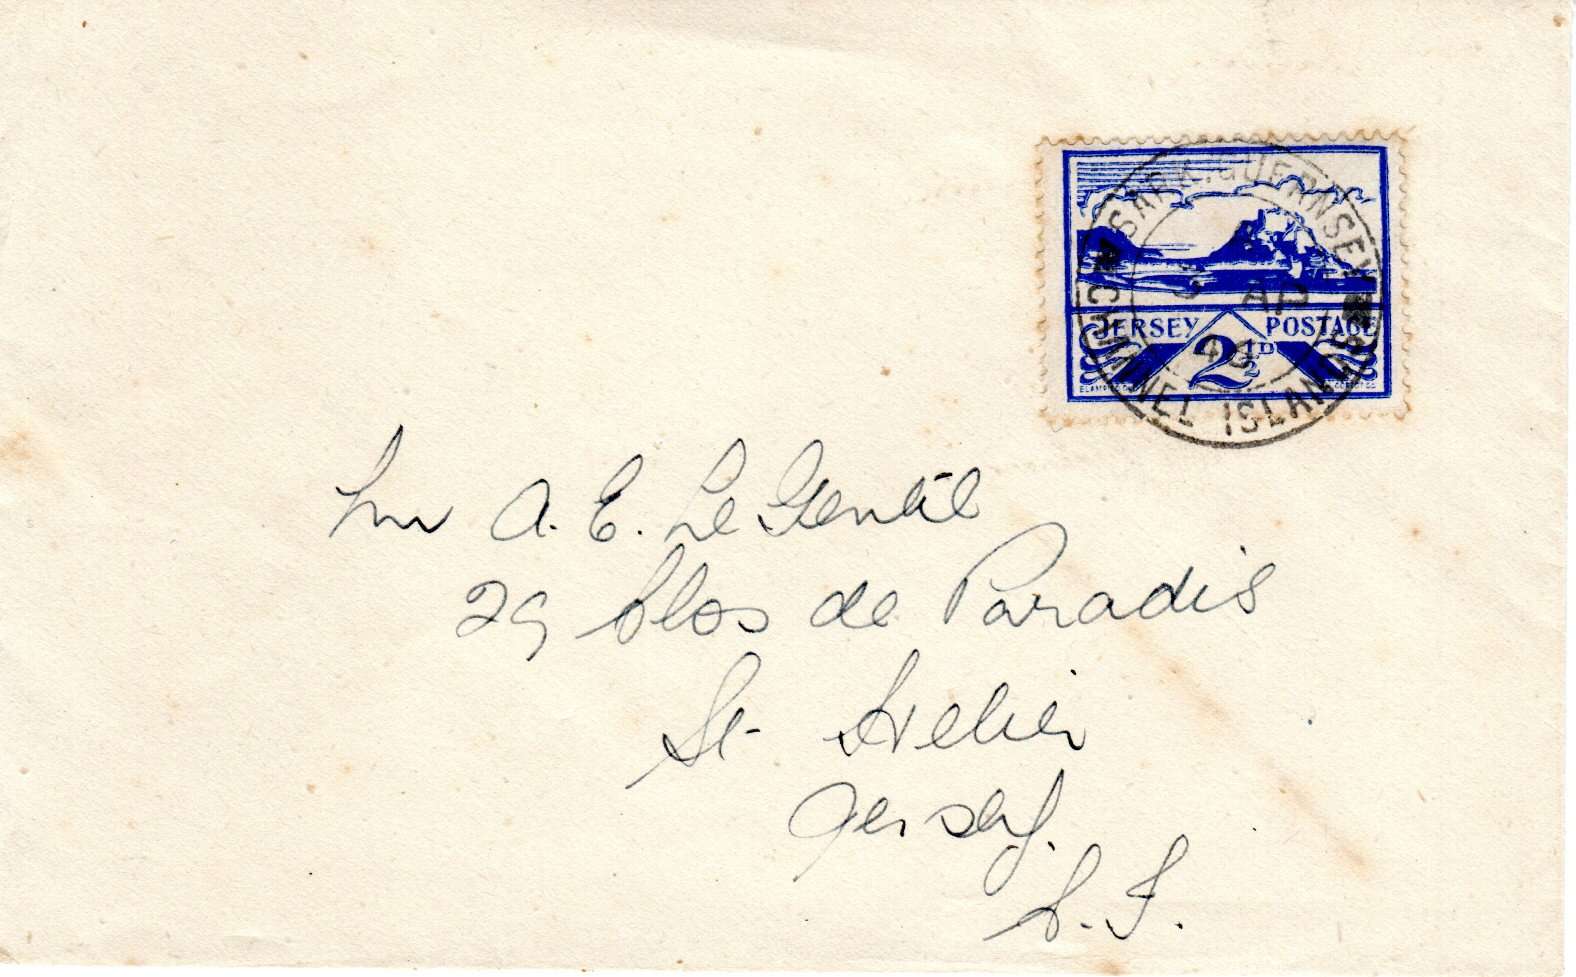 SARK. GUERNSEY
3 AP
CHANNEL ISLANDS
JERSEY POSTAGE
2½D
A. E. Le Gentil
29 Clos de Paradis
St. Helier
Jersey.